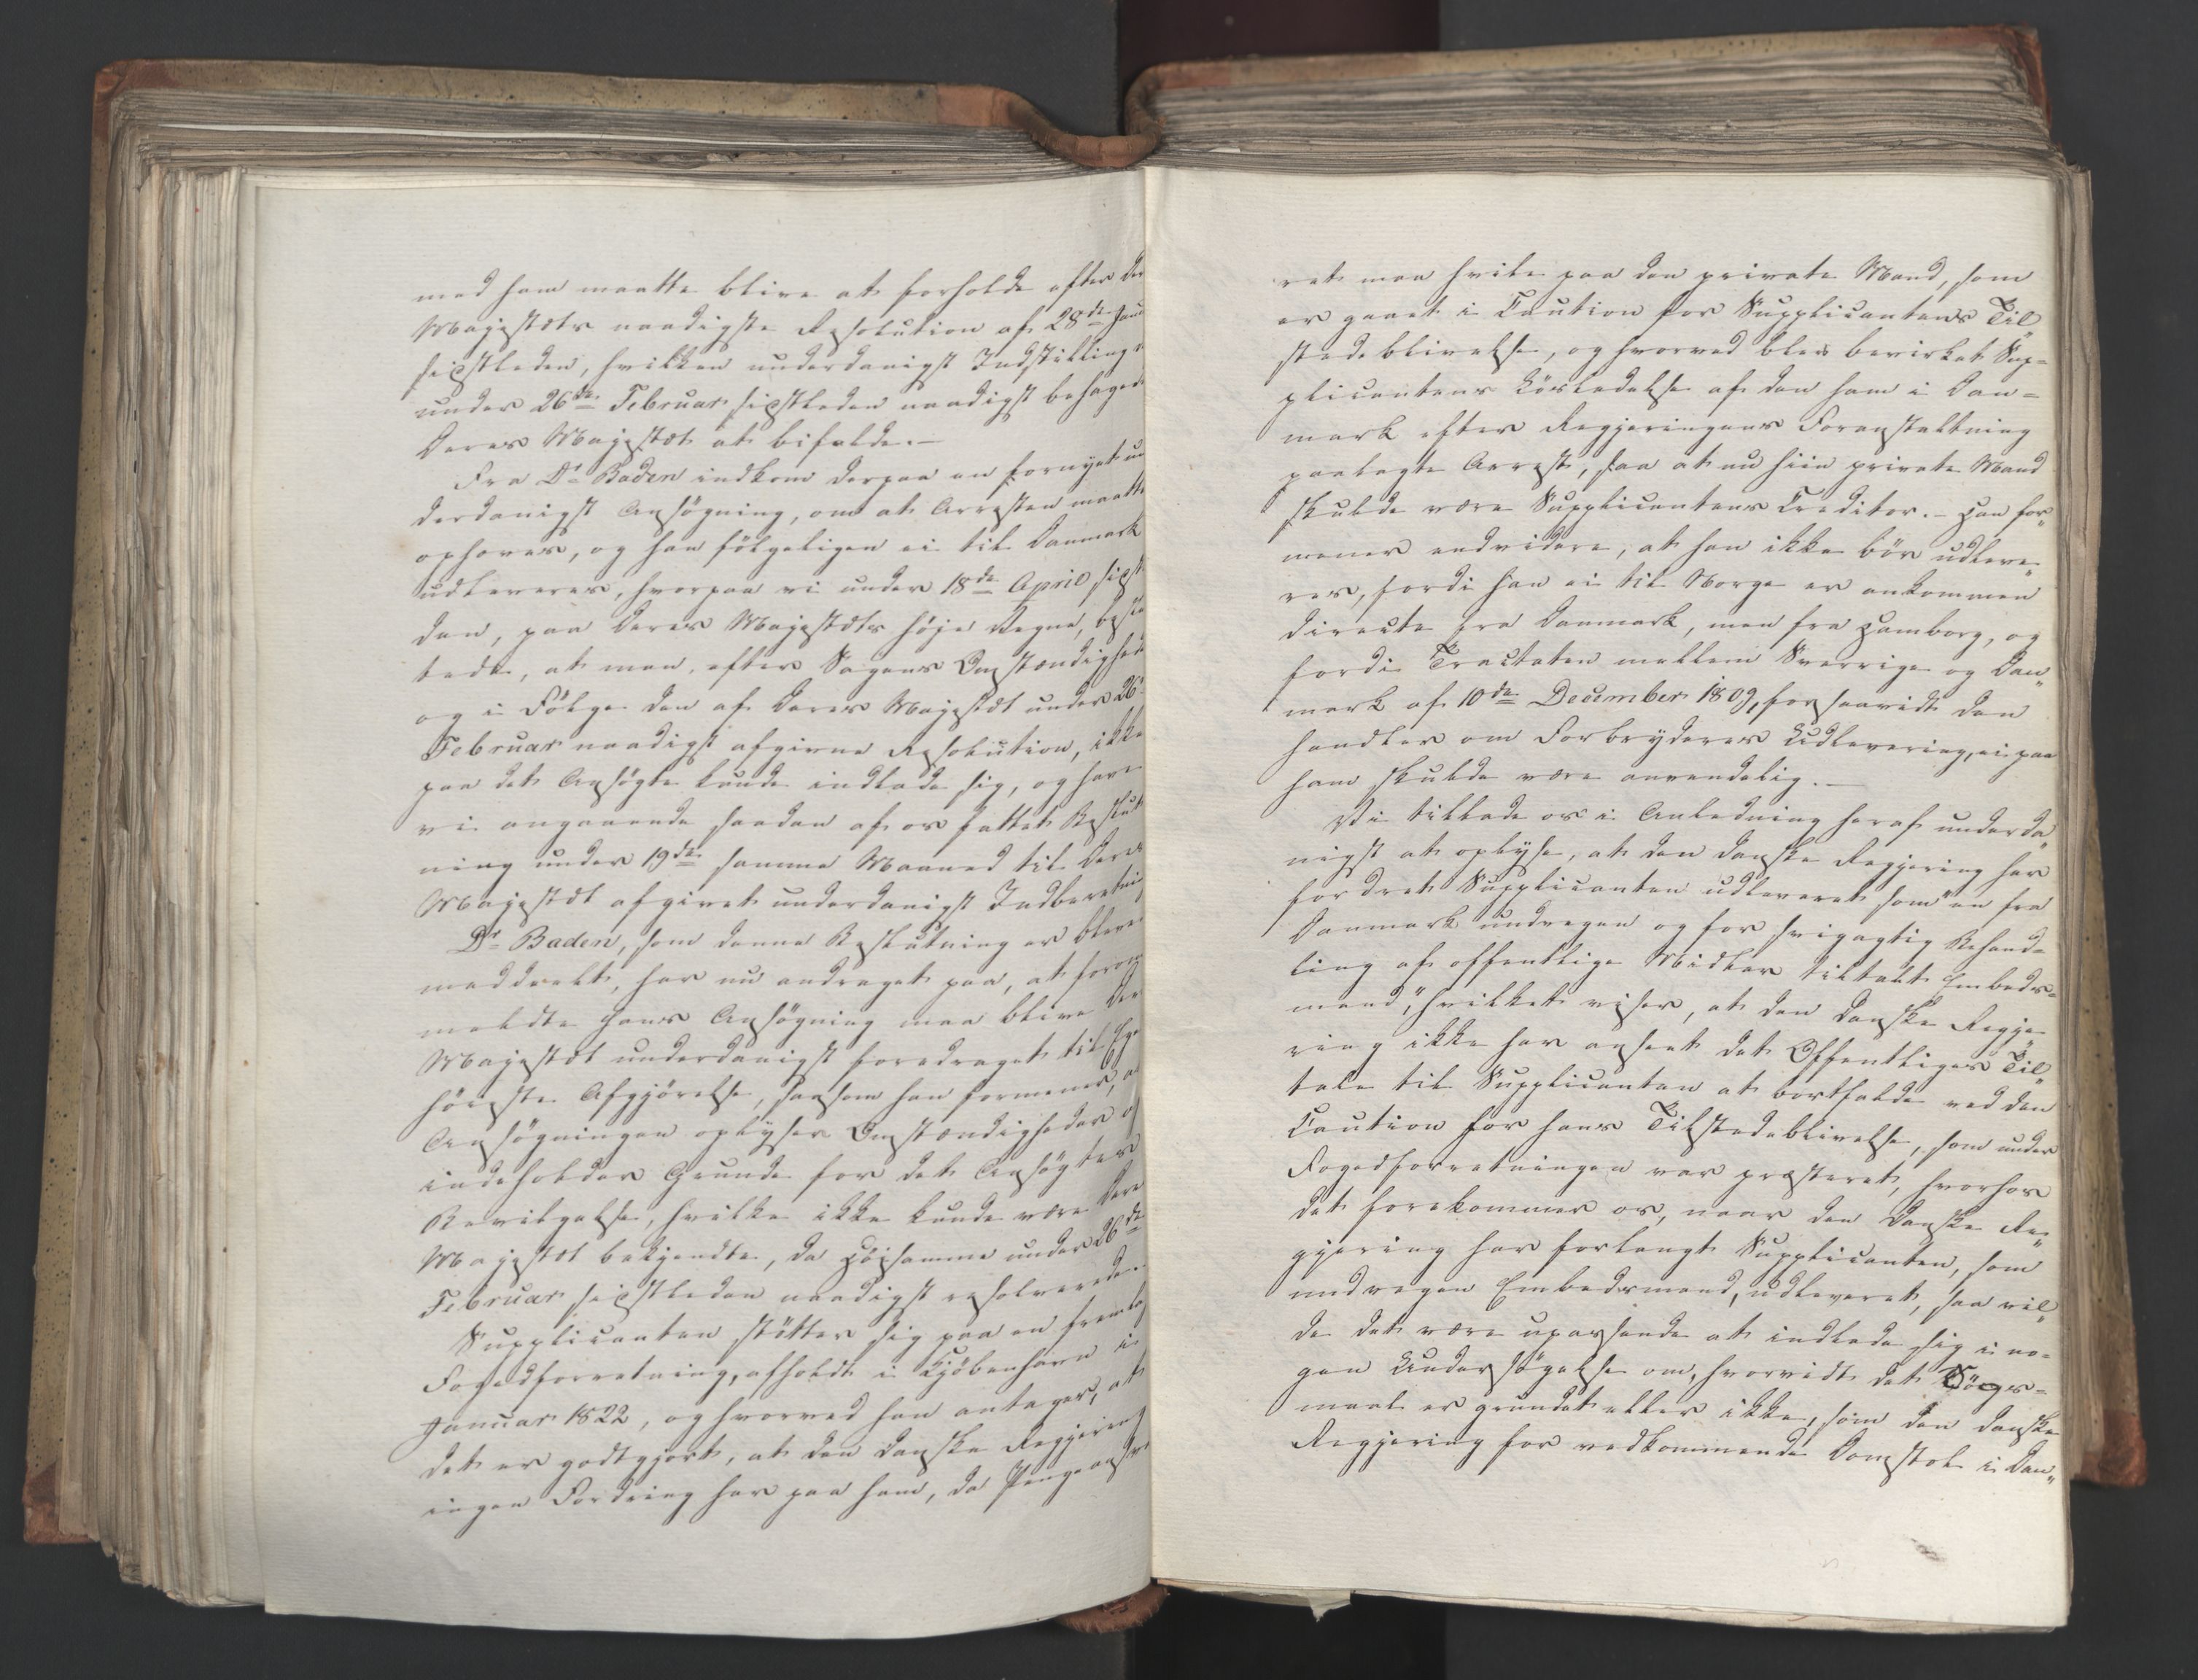 med ham maatte blive at forholde efter De
Majestæts naadigste Resolution af 28de Janu
sidstleden, hvilken underdanigst Indstilling
under 26de Februar sidstleden naadigst behagede
Deres Majestæt at bifalde.—
Fra Dr Baden indkom derpaa en fornyet un
derdanigst Ansøgning, om at Arresten maatte
ophæves, og han følgeligen ei til Danmark
udleveres, hvorpaa vi under 18de April sidst
den, paa Deres Majestæts høje Vegne, beslu
tede, at man, efter Sagens Omstændigheder
og i Følge den af Deres Majestæt under 26
Februar naadigst afgivne Resolution, ikke
paa det Ansøgte kunde indlade sig, og have
vi angaaende saadan af os fattet Beslut
ning under 19de samme Maaned til Deres
Majestæt afgivet underdanigst Indberetning
Dr Baden, som denne Beslutning er bleven
meddeelt, har nu andraget paa, at foran
meldte hans Ansøgning maa blive De
Majestæt underdanigst foredraget til Ege
høieste Afgjørelse, saasom han formener, at
Ansøgningen oplyser Omstændigheder og
indeholder Grunde for det Ansøgtes
Bevilgelse, hvilke ikke kunde være Deres
Majestæt bekjendte, da Høisamme under 26de
Februar sidstleden naadigst resolverede.
Supplicanten støtter sig paa en fremlagt
Fogedforretning, afholdt i Kjøbenhavn i
Januar 1822, og hvorved han antager, at
det er godtgjort, at den danske Regjering
ingen Fordring har paa ham, da Pengeansva
ret maa hvile paa den private Mand, som
er gaaet i Caution for Supplicantens Til„
stedeblivelse, og hvorved blev bevirket Sup=
plicantens Løsladelse af den ham i Dan=
mark efter Regjeringens Foranstaltning
paalagte Arrest, saa at nu hiin private Mand
skulde være Supplicantens Creditor. – Han for„
mener endvidere, at han ikke bør udleve„
res, fordi han ei til Norge er ankommen
directe fra Danmark, men fra Hamborg, og
fordi Tractaten mellem Sverrige og Dan„
mark af 10de December 1809, forsaavidt den
handler om Forbryderes Udlevering, ei paa
ham skulde være anvendelig.—
Vi tillade os i Anledning heraf underda„
nigst at oplyse, at den danske Regjering har
fordret Supplicanten udleveret som „en fra
Danmark undvegen og for svigagtig Behand=
ling af offentlige Midler tiltalt Embeds=
mand," hvilket viser, at den Danske Regje„
ring ikke har anseet det Offentliges Til„
tale til Supplicanten at bortfalde ved den
Caution for hans Tilstedeblivelse, som under
Fogedforretningen var præsteret, hvorfor
det forekommer os, naar den Danske Re„
gjering har forlangt Supplicanten, som
undvegen Embedsmand, udleveret, saa vil„
de det være upassende at indlade sig i no=
gen Undersøgelse om, hvorvidt det Søgs=
maal er grundet eller ikke, som den danske
Regjering for vedkommende Domstol i Dan„